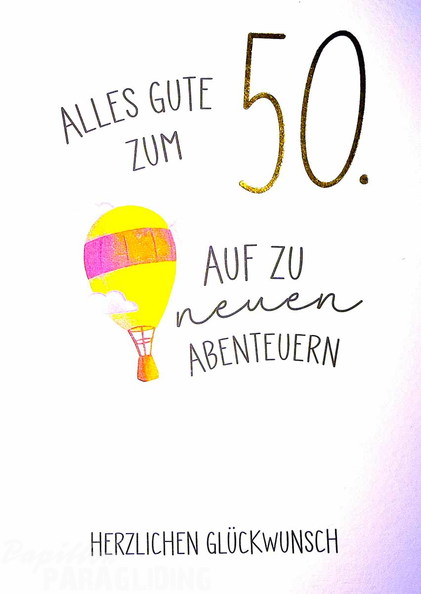 ALLES GUTE
ZUM
50.
AUF ZU
neuen
ABENTEUERN
HERZLICHEN GLÜCKWUNSCH
PARAGLIDING